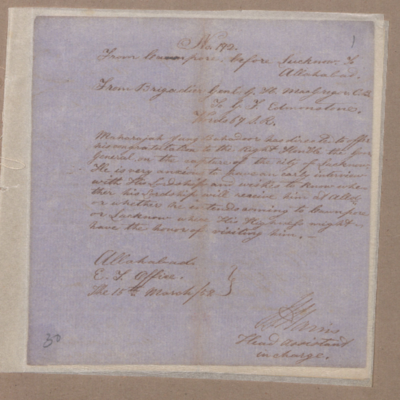 No 192.
1
From Cawnpore before Lucknow To
Allahabad.
From Brigadier Genl. G. H. MacGregor C.B.
To G. F. Edmonstone.
Words 69 S.R.
Maharajah Jung Bahadoor has directed to offer
his congratulation to the Right Honble the Gov
General on the capture of the city of Lucknow
He is very anxious to have an early interview
with His Lordship and wishes to know whe-
ther his Lordship will receive him at Alld
or whether he intends coming to Cawnpore
or Lucknow where His Highness might
have the honor of visiting him.
Allahabad.
E. T. Office.
The 15th March/58
Harris
Head assistant
in charge.
30